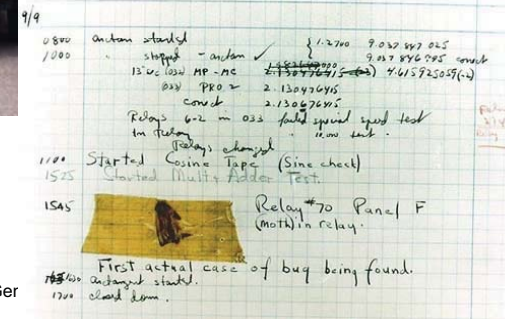 9/9
0800 arctan started { 1.2700 9.037 847 025
1000 " stopped - arctan ✓ 9.037 846 995 correct
13"uc (032) MP - MC 2.130476415 4.615925059(-2)
(033) PRO 2 2.130476415
correct 2.130676415
Relays 6-2 in 033 failed special speed test
In Relay " 11.000 test.
Relays changed
1100 Started Cosine Tape (Sine check)
1525 Started Mult+Adder Test.
1545 Relay #70 Panel F
(moth) in relay.
First actual case of bug being found.
1630 arctangent started.
1700 closed down.
Ger